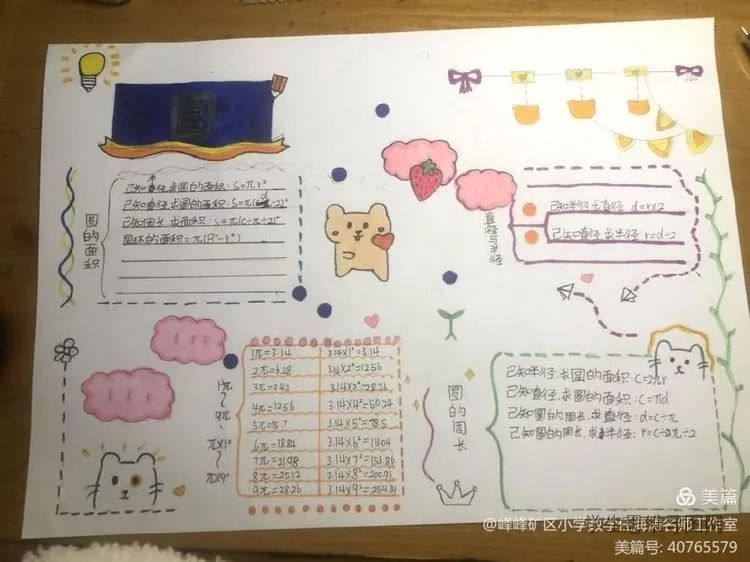 圆的面积
已知半径,求圆的面积:S=π.r²
已知直径,求圆的面积:S=π(d÷2)²
已知周长,求面积:S=π(c÷π÷2)²
圆环的面积=π(R²-r²)
直径与半径
已知半径,求直径 d=r×2
已知直径,求半径 r=d÷2
1π~9π、π×1²~π×9²
1π=3.14 3.14×1²=3.14
2π=6.28 3.14×2²=12.56
3π=9.42 3.14×3²=28.26
4π=12.56 3.14×4²=50.24
5π=15.7 3.14×5²=78.5
6π=18.84
7π=21.98 3.14×7²=153.86
8π=25.12 3.14×8²=200.96
9π=28.26 3.14×9²=254.34
圆的周长
已知半径,求圆的面积:C=2πr
已知直径,求圆的面积:C=πd
已知圆的周长,求直径:d=C÷π
已知圆的周长,求半径:r=C÷π÷2
美篇
@峰峰矿区小学数学任海涛名师工作室
美篇号: 40765579